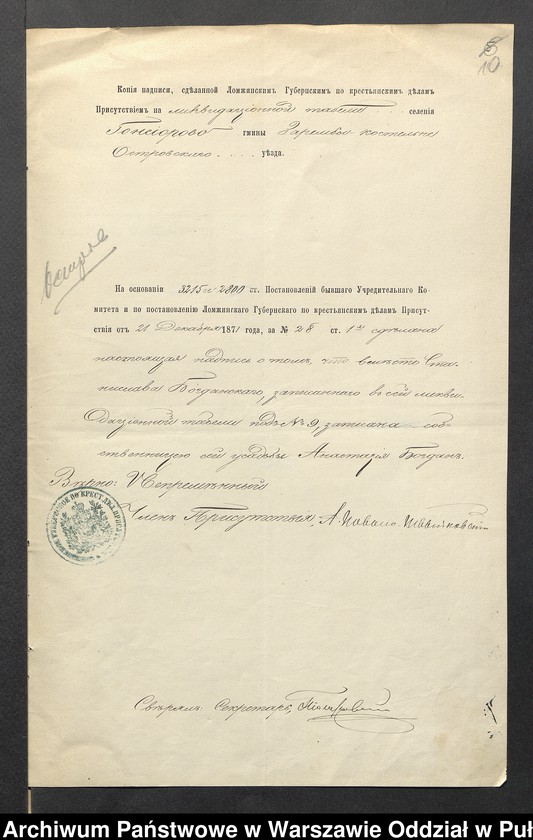 10
Копія надписи, сдѣланной Ломжинскимъ Губернскимъ по крестьянскимъ дѣламъ
Присутствіемъ на ликвидаціонной табели . . . селенія
Гонсіорово гмины Зарембы-костельне
Островскаго . . . . уѣзда.
На основаніи 3215 и 2800 ст. Постановленій бывшаго Учредительнаго Ко-
митета и по постановленію Ломжинскаго Губернскаго по крестьянскимъ дѣламъ Присут-
ствія отъ 21 Декабря 1871 года, за № 28 ст. 1ю сдѣлана
настоящая надпись о томъ, что вмѣсто Ста-
нислава Богданскаго, записаннаго въ сей ликви-
даціонной табели подъ № 9, записана соб-
ственницею сей усадьбы Анастазія Богдан.
Вѣрно: Непремѣнный
Членъ Присутствія, А.
Свѣрялъ: Секретарь,
Archiwum Państwowe w Warszawie Oddział w Puł